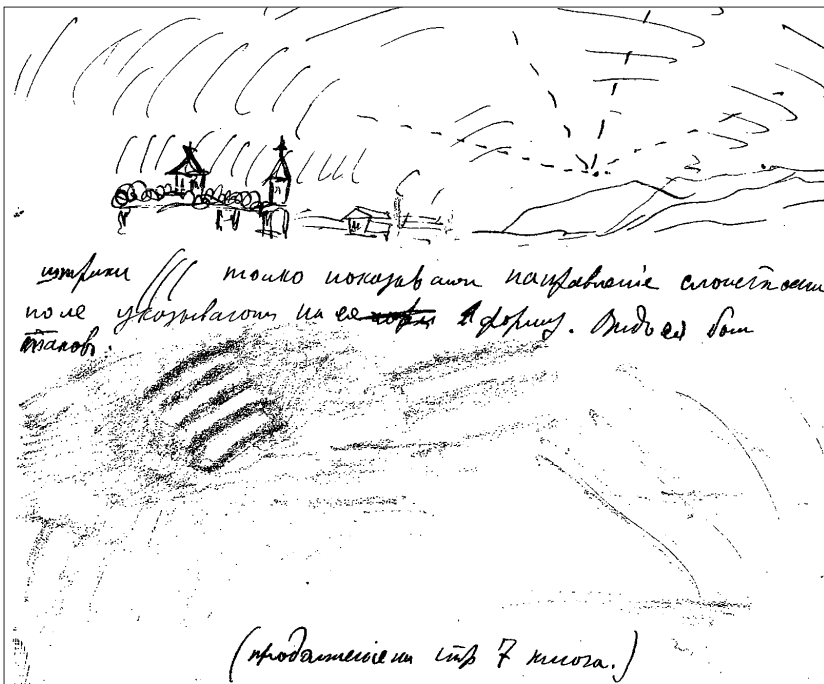 штрихи /// только показывают направление слоистости
но не указывают на ее форму. Видъ ея был
таковъ.
(продолжение на стр 7 книга.)